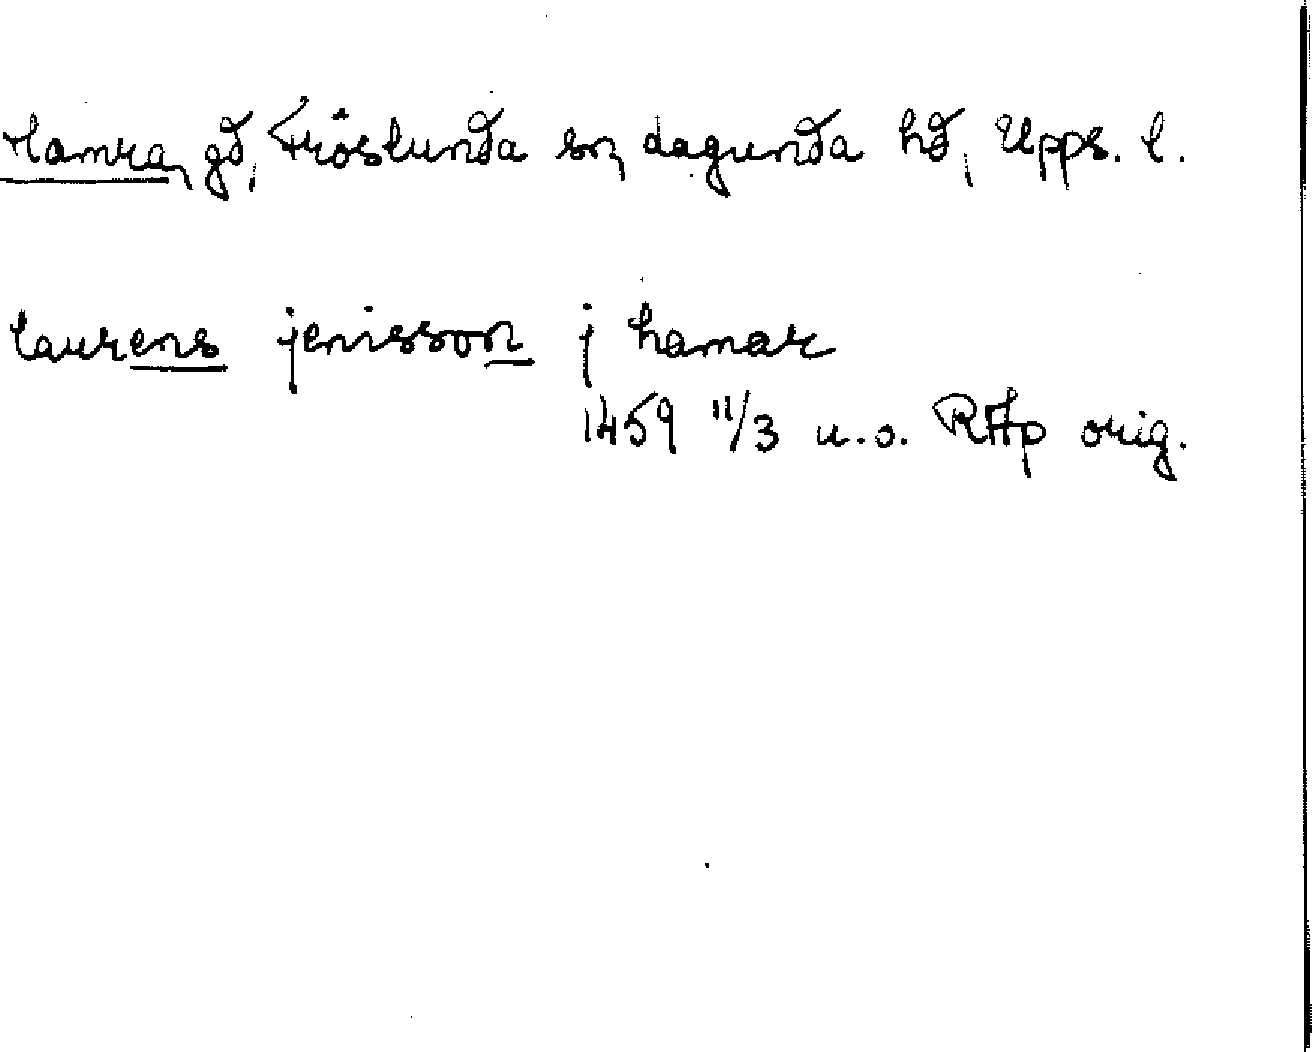 Hamra, gd, Fröslunda sn, Lagunda hd, Upps. l.
laurens jenisson j hamar
1459 11/3 u.o. RAp orig.